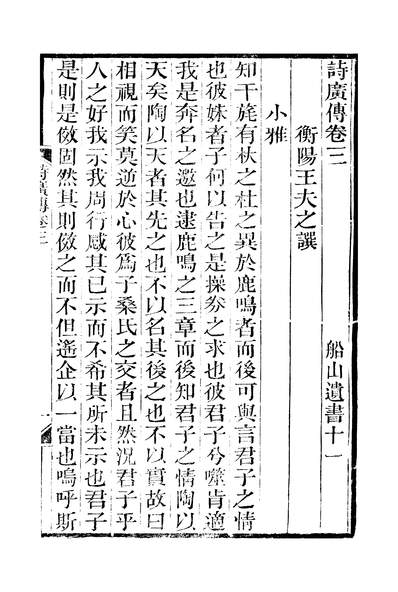 詩廣傳卷三
船山遺書十一
衡陽王夫之譔
小雅
知干旄有杕之杜之異於鹿鳴者而後可與言君子之情
也彼姝者子何以告之是操券之求也彼君子兮噬肯適
我是奔名之邀也逮鹿鳴之三章而後知君子之情陶以
天矣陶以天者其先之也不以名其後之也不以實故曰
相視而笑莫逆於心彼爲子桑氏之交者且然況君子乎
人之好我示我周行感其已示而不希其所未示也君子
是則是傚固然其則傚之而不但遙企以一當也嗚呼斯
詩廣傳卷三
一